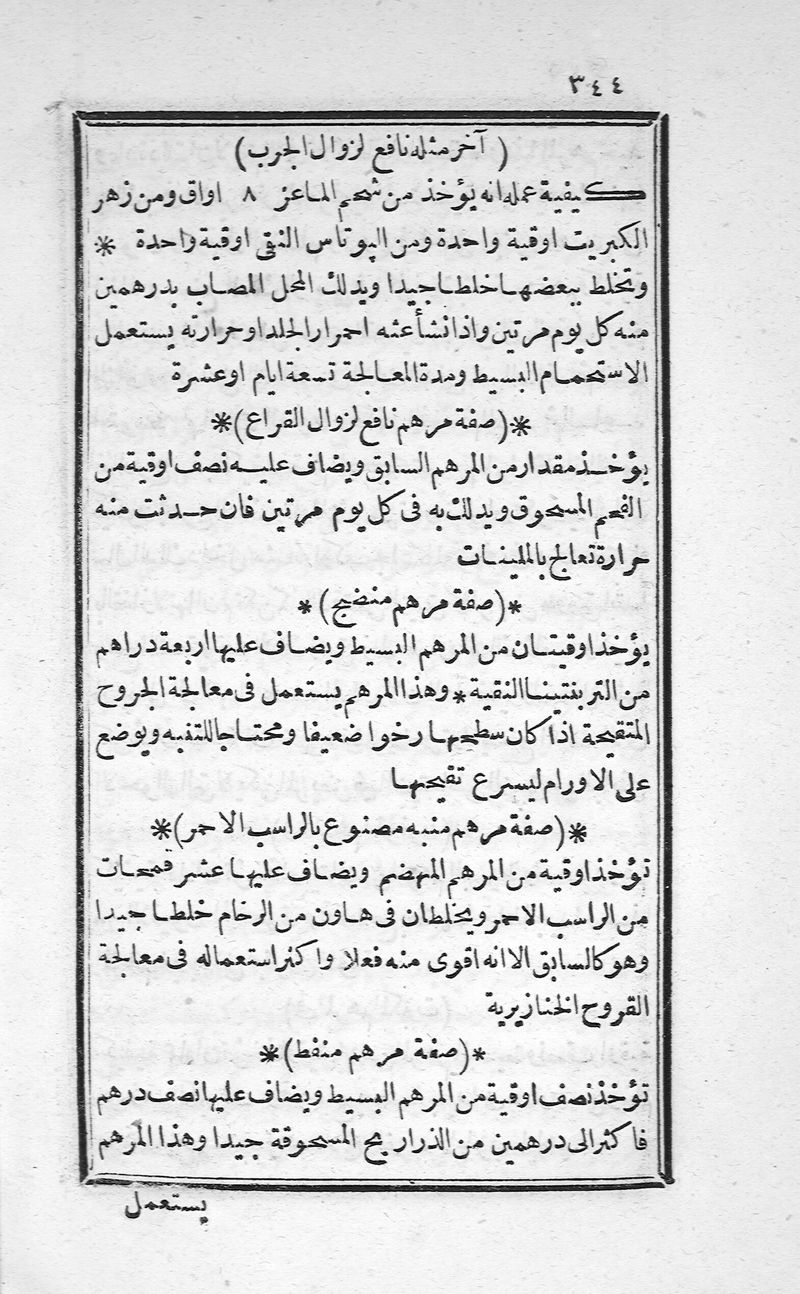 ٣٤٤
( آخر مثله نافع لزوال الجرب )
كيفية عمله انه يؤخذ من شحم الماعز ٨ اواق ومن زهر
الكبريت اوقية واحدة ومن الپوتاس النقى اوقية واحدة *
وتخلط ببعضها خلطا جيدا ويدلك المحل المصاب بدرهمين
منه كل يوم مرتين واذا نشأ عنه احمرار الجلد او حرارته يستعمل
الاستحمام البسيط ومدة المعالجة تسعة ايام او عشرة
*( صفة مرهم نافع لزوال القراع )*
يؤخذ مقدار من المرهم السابق ويضاف عليه نصف اوقية من
الفحم المسحوق ويدلك به فى كل يوم مرتين فان حدثت منه
حرارة تعالج بالملينات
*( صفة مرهم منضج )*
يؤخذ اوقيتان من المرهم البسيط ويضاف عليها اربعة دراهم
من التربنتينا النقية * وهذا المرهم يستعمل فى معالجة الجروح
المتقيحة اذا كان سطحها رخوا ضعيفا ومحتاجا للتنبه ويوضع
على الاورام ليسرع تقيحها
*( صفة مرهم منبه مصنوع بالراسب الاحمر )*
تؤخذ اوقية من المرهم المهضم ويضاف عليها عشر قمحات
من الراسب الاحمر ويخلطان فى هاون من الرخام خلطا جيدا
وهو كالسابق الا انه اقوى منه فعلا واكثر استعماله فى معالجة
القروح الخنازيرية
*( صفة مرهم منفط )*
تؤخذ نصف اوقية من المرهم البسيط ويضاف عليها نصف درهم
فاكثر الى درهمين من الذراريح المسحوقة جيدا وهذا المرهم
يستعمل